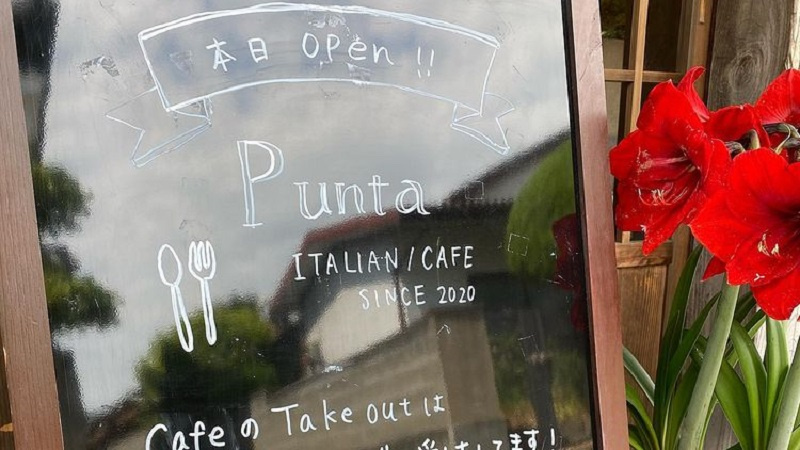 本日 OPEN !!
Punta
ITALIAN/CAFE
SINCE 2020
Cafe の Take out は
してます!